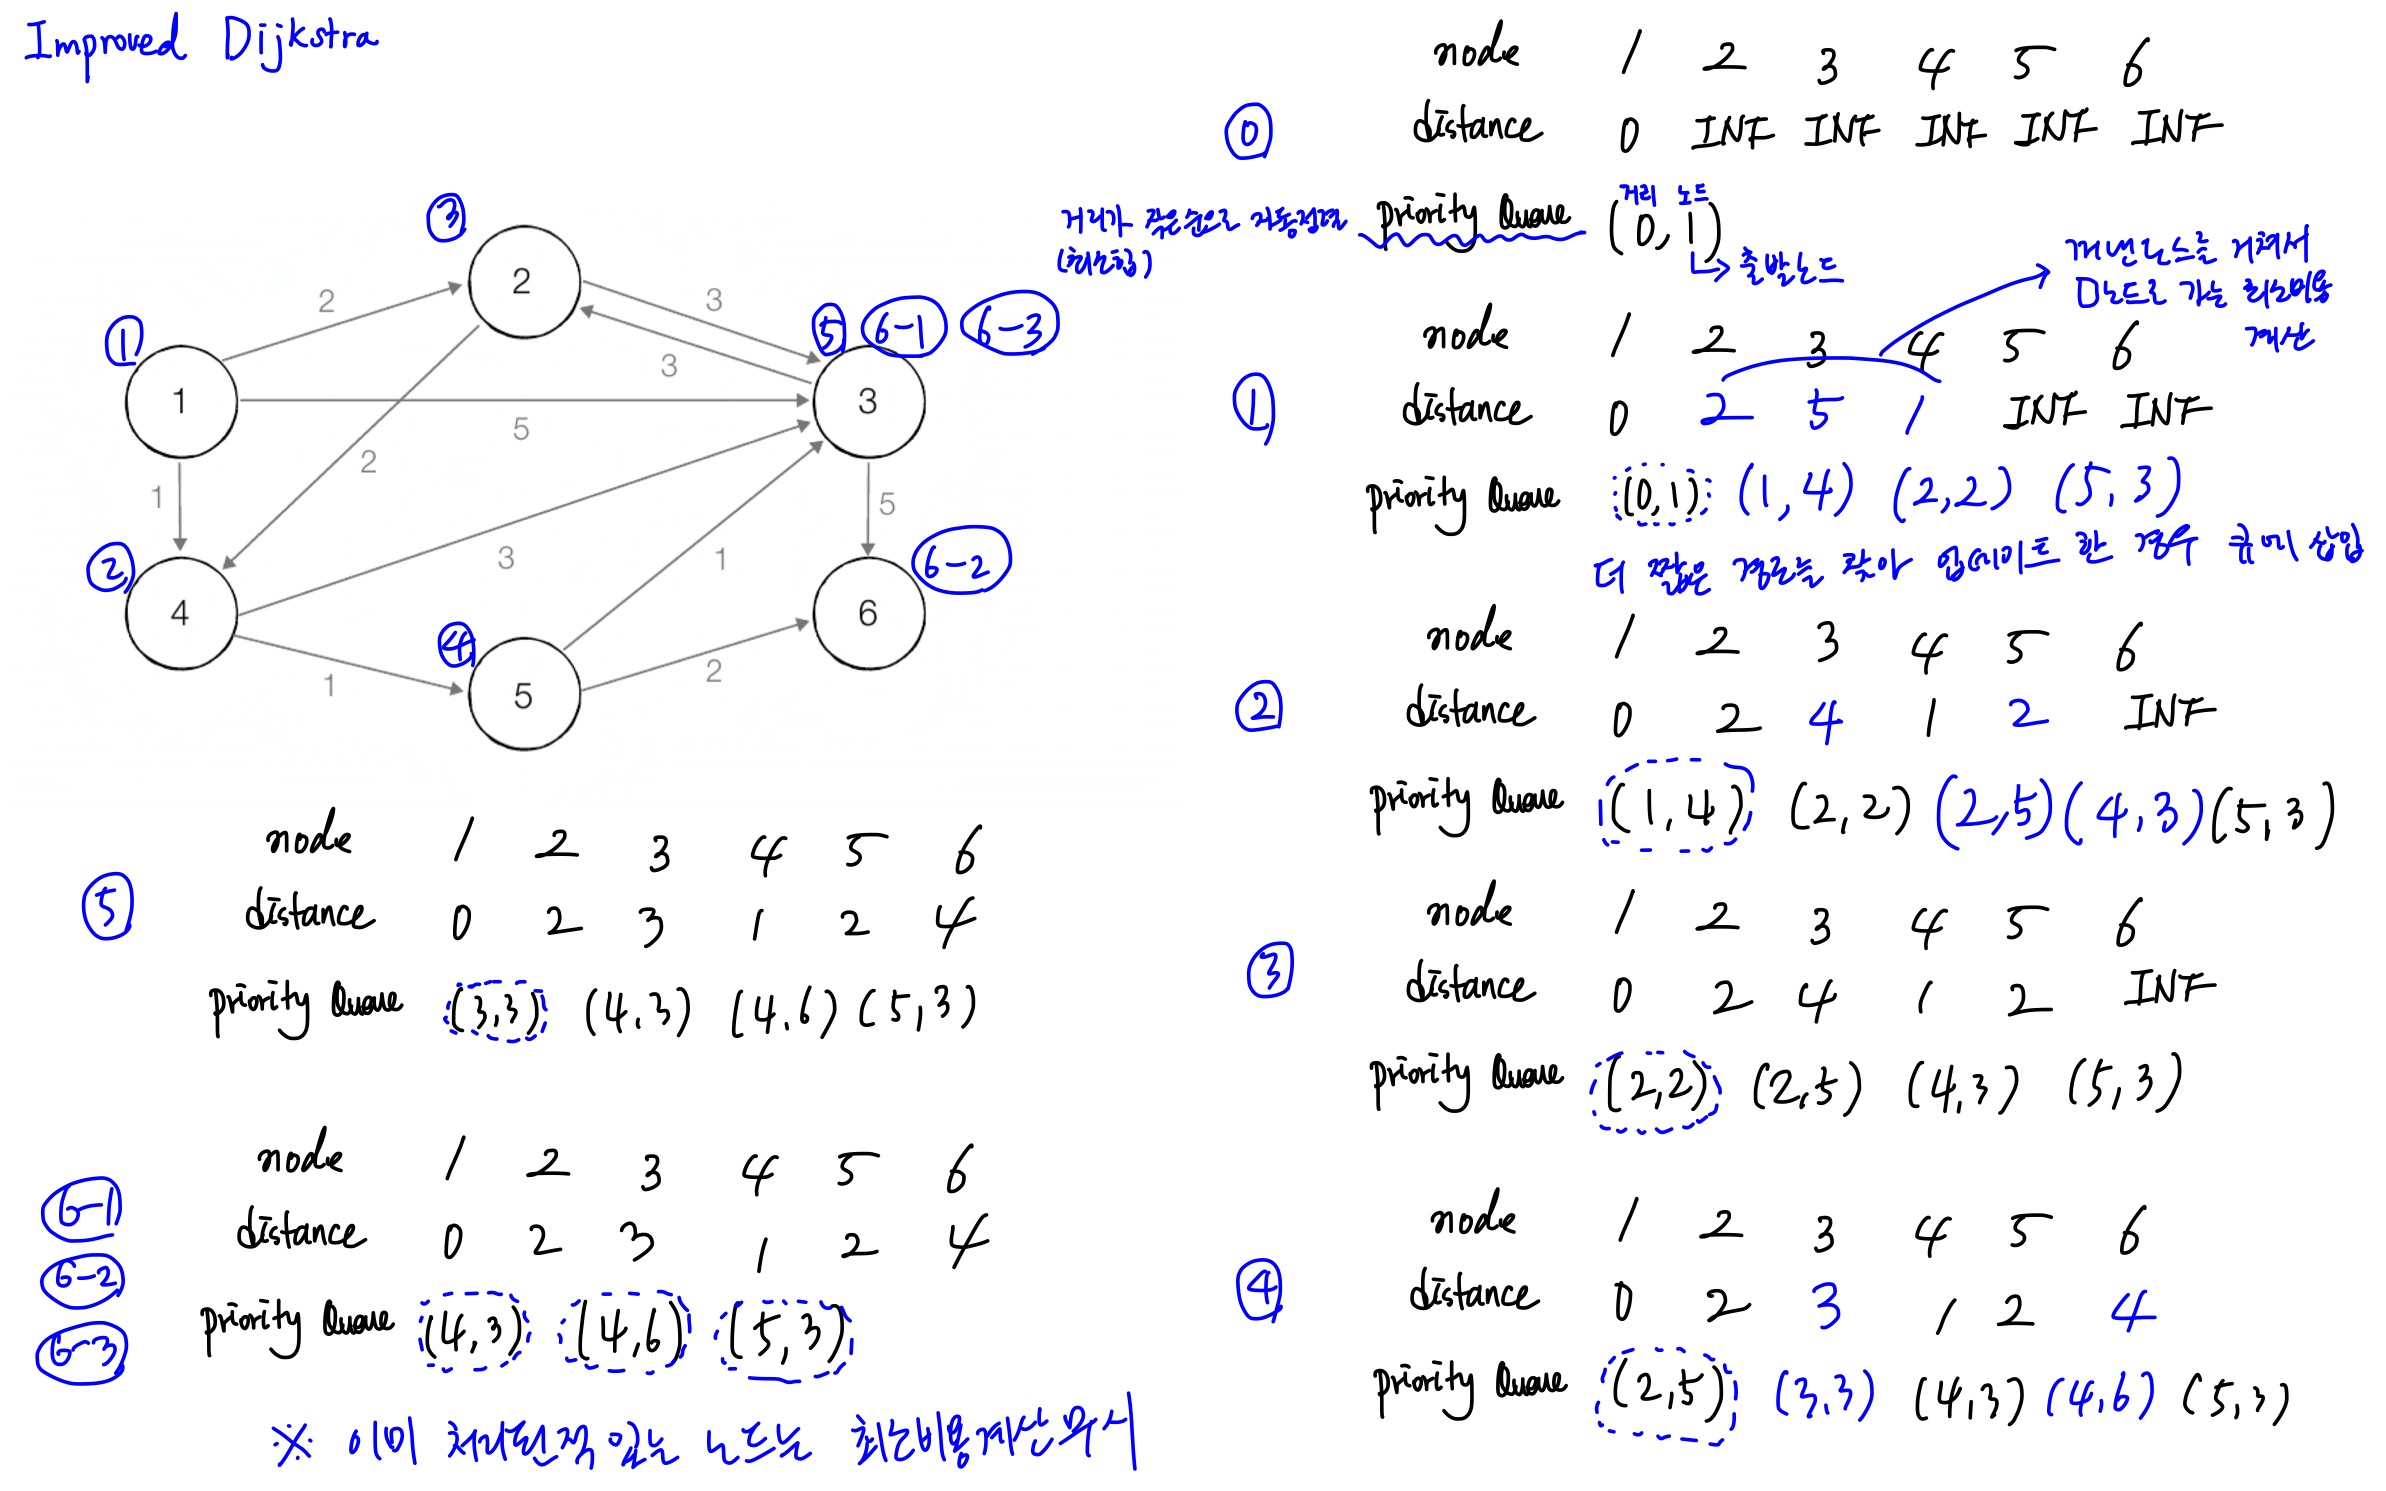 Improved Dijkstra
3
2
2
3
5
6-1
6-3
1
3
1
3
5
2
1
5
2
4
3
1
5
6
6-2
4
5
1
2
0
node 1 2 3 4 5 6
distance 0 INF INF INF INF INF
거리가 작은순으로 자동정렬
(최소힙)
priority Queue (0,1)
거리 노드
출발노드
꺼낸노드를 거쳐서
노드로 가는 최소비용
계산
1
node 1 2 3 4 5 6
distance 0 2 5 1 INF INF
priority Queue (0,1) (1,4) (2,2) (5,3)
더 짧은 경로를 찾아 업데이트 한 경우 큐에 삽입
2
node 1 2 3 4 5 6
distance 0 2 4 1 2 INF
priority Queue (1,4) (2,2) (2,5) (4,3) (5,3)
3
node 1 2 3 4 5 6
distance 0 2 4 1 2 INF
priority Queue (2,2) (2,5) (4,3) (5,3)
4
node 1 2 3 4 5 6
distance 0 2 3 1 2 4
priority Queue (2,5) (3,3) (4,3) (4,6) (5,3)
5
node 1 2 3 4 5 6
distance 0 2 3 1 2 4
priority Queue (3,3) (4,3) (4,6) (5,3)
6-1
6-2
6-3
node 1 2 3 4 5 6
distance 0 2 3 1 2 4
priority Queue (4,3) (4,6) (5,3)
※ 이미 처리된적 있는 노드는 최소비용계산 무시